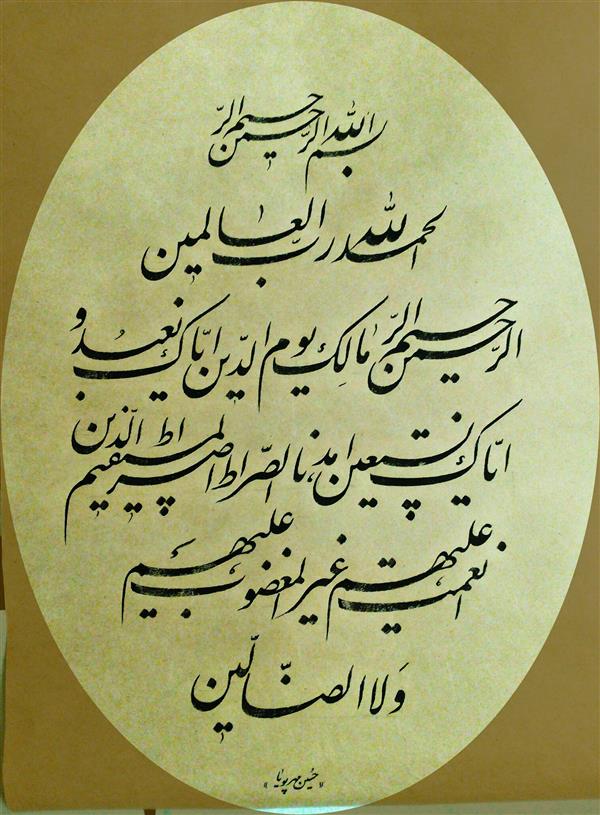 بسم الله الرحمن الرحیم
الحمدلله رب العالمین
الرحمن الرحیم مالک یوم الدین ایاک نعبد و
ایاک نستعین اهدنا الصراط المستقیم صراط الذین
انعمت علیهم غیر المغضوب علیهم
ولاالضالین
«حسین مهرپویا»